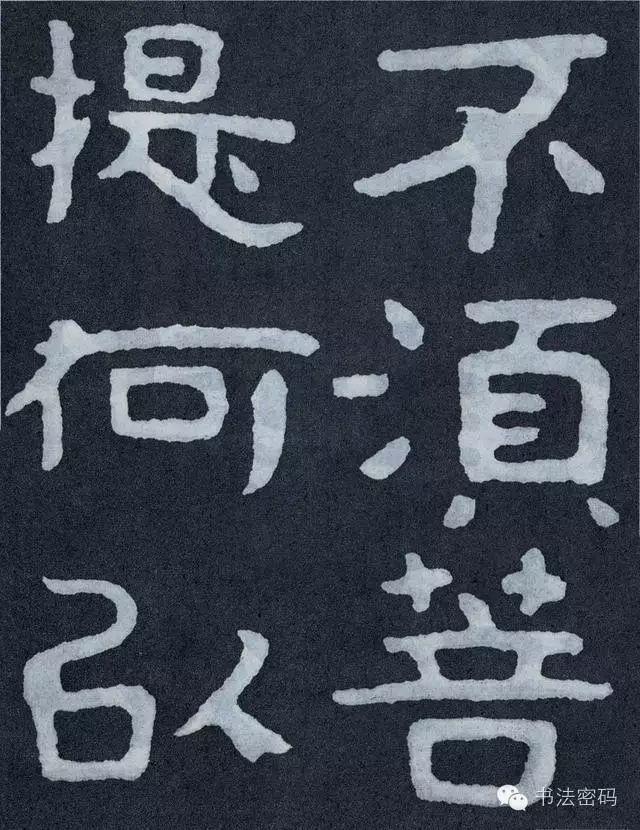 不湏菩
提何以
书法密码